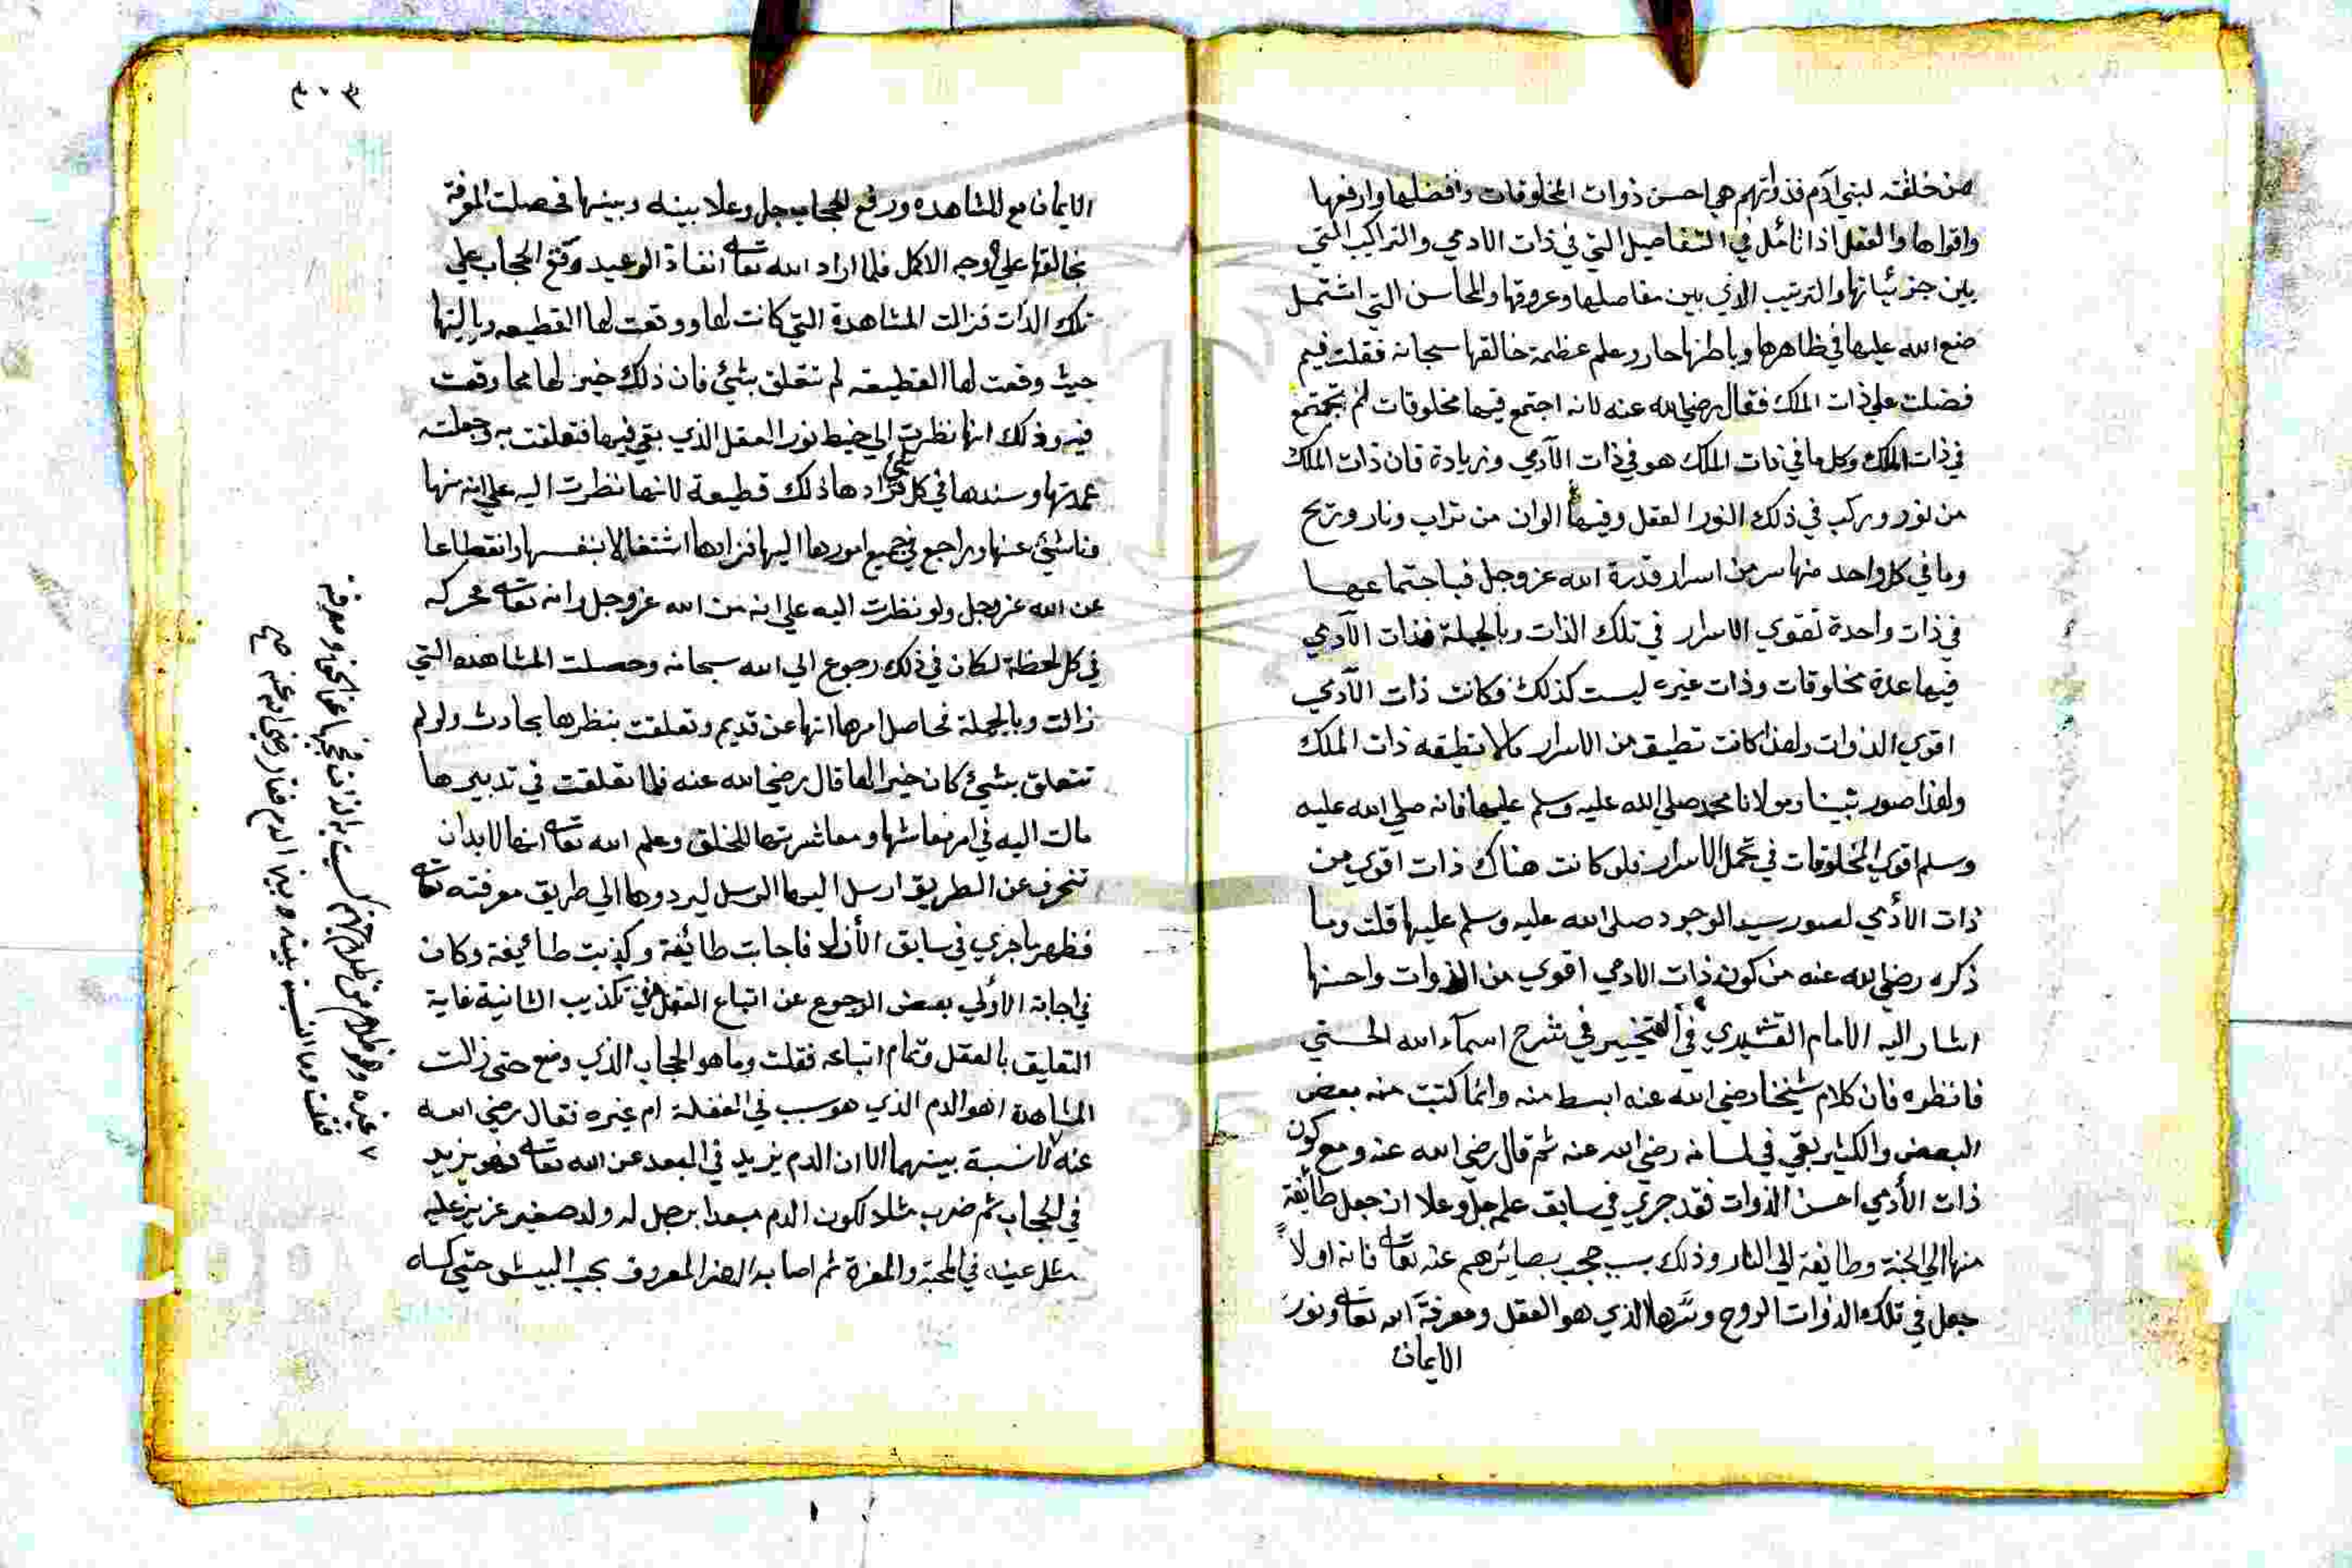 من خلقته لبني آدم فذواتهم هي احسن ذوات المخلوقات وافضلها وارفعها
واقواها والعقل اذا تأمل في التفاصيل التي في ذات الادمي والتراكيب التي
بين جزئياتها والترتيب الذي بين مفاصلها وعروقها والمحاسن التي اشتمل
صنع الله عليها في ظاهرها وباطنها حار وعلم عظمة خالقها سبحانه فقلت فبم
فضلت علي ذات الملك فقال رضي الله عنه لانه اجتمع فيها مخلوقات لم تجتمع
في ذات الملك وكل ما في ذات الملك هو في ذات الآدمي وزيادة فان ذات الملك
من نور وركب في ذلك النور العقل وفيها الوان من تراب ونار وريح
وما في كل واحد منها سر من اسرار قدرة الله عز وجل فباجتماعها
في ذات واحدة تقوي الاسرار في تلك الذات وبالجملة فذات الآدمي
فيها عدة مخلوقات وذات غيره ليست كذلك فكانت ذات الآدمي
اقوي الذوات ولهذا كانت تطيق من الاسرار مالا تطيقه ذات الملك
ولهذا صور نبينا ومولانا محمد صلي الله عليه وسلم عليها فانه صلي الله عليه
وسلم اقوي المخلوقات في تحمل الاسرار فلو كانت هناك ذات اقوي من
ذات الأدمي لصور سيد الوجود صلي الله عليه وسلم عليها قلت وما
ذكره رضي الله عنه من كون ذات الادمي اقوي من الذوات واحسنها
اشار اليه الامام القشيري في التحبير في شرح اسمآء الله الحسني
فانظره فان كلام شيخنا رضي الله عنه ابسط منه وانما كتبت منه بعض
البعض والكثير بقي في لسانه رضي الله عنه ثم قال رضي الله عنه ومع كون
ذات الأدمي احسن الذوات فقد جري في سابق علمه جل وعلا ان جعل طائفة
منها الي الجنة وطايفة الي النار وذلك بسبب حجب بصائرهم عنه تعالي فانه اولاً
جعل في تلك الذوات الروح وسرها الذي هو العقل ومعرفة الله تعالي ونور
الايمان
٣٠٣
الايمان مع المشاهده ورفع الحجاب جل وعلا بينه وبينها فحصلت المعرفة
بخالقها علي وجه الاكمل فلما اراد الله تعالي انفاذ الوعيد وقع الحجاب علي
تلك الذات فزالت المشاهدة التي كانت لها ووقعت لها القطيعه وياليتها
حيث وقعت لها القطيعه لم تتعلق بشئ فان ذلك خير لها مما وقعت
فيه وذلك انها نظرت الي خيط نور العقل الذي بقي فيها فتعلقت به وجعلته
عمدتها وسندها في كل شي فزادها ذلك قطيعة لانها نظرت اليه علي انه منها
وناشئ عنها وراجع في جميع امورها اليها فزادها اشتغالا بنفسها وانقطاعا
عن الله عز وجل ولو نظرت اليه علي انه من الله عز وجل وانه تعالي محركه
في كل لحظة لكان في ذلك رجوع الي الله سبحانه وحصلت المشاهده التي
زالت وبالجملة فحاصل امرها انها عن قديم وتعلقت بنظرها بحادث ولو لم
تتعلق بشئ كان خيرا لها قال رضي الله عنه فلما تعلقت في تدبيرها
مالت اليه في امر معاشها ومعاشرتها للخلق وعلم الله تعالي انها لابد ان
تنحرف عن الطريق ارسل اليها الرسل ليردوها الي طريق معرفته تعالي
فظهر ما جري في سابق الأزل فاجابت طائفة وكذبت طائيفة وكان
في اجابة الاولي بعض الرجوع عن اتباع العقل وفي تكذيب الثانية غاية
التعليق بالعقل وتمام اتباعه فقلت وما هو الحجاب الذي وضع حتي زالت
المشاهدة اهو الدم الذي هو سبب في الغفلة ام غيره فقال رضي الله
عنه لانسبة بينهما الا ان الدم يزيد في البعد عن الله تعالي فهو يزيد
في الحجاب ثم ضرب مثلا لكون الدم مبعدا برجل له ولد صغير عزيز عليه
مثل عينه في المحبة والمعزة ثم اصابه الضر المعروف بحب البيش حتي كساه
غيره وهو ظلام من ظلام جهنم كسيت به الذات فحجبها عن الحق ومعرفته
فقلت وما النسبة بينه وبين الدم فقال رضي الله عنه صح